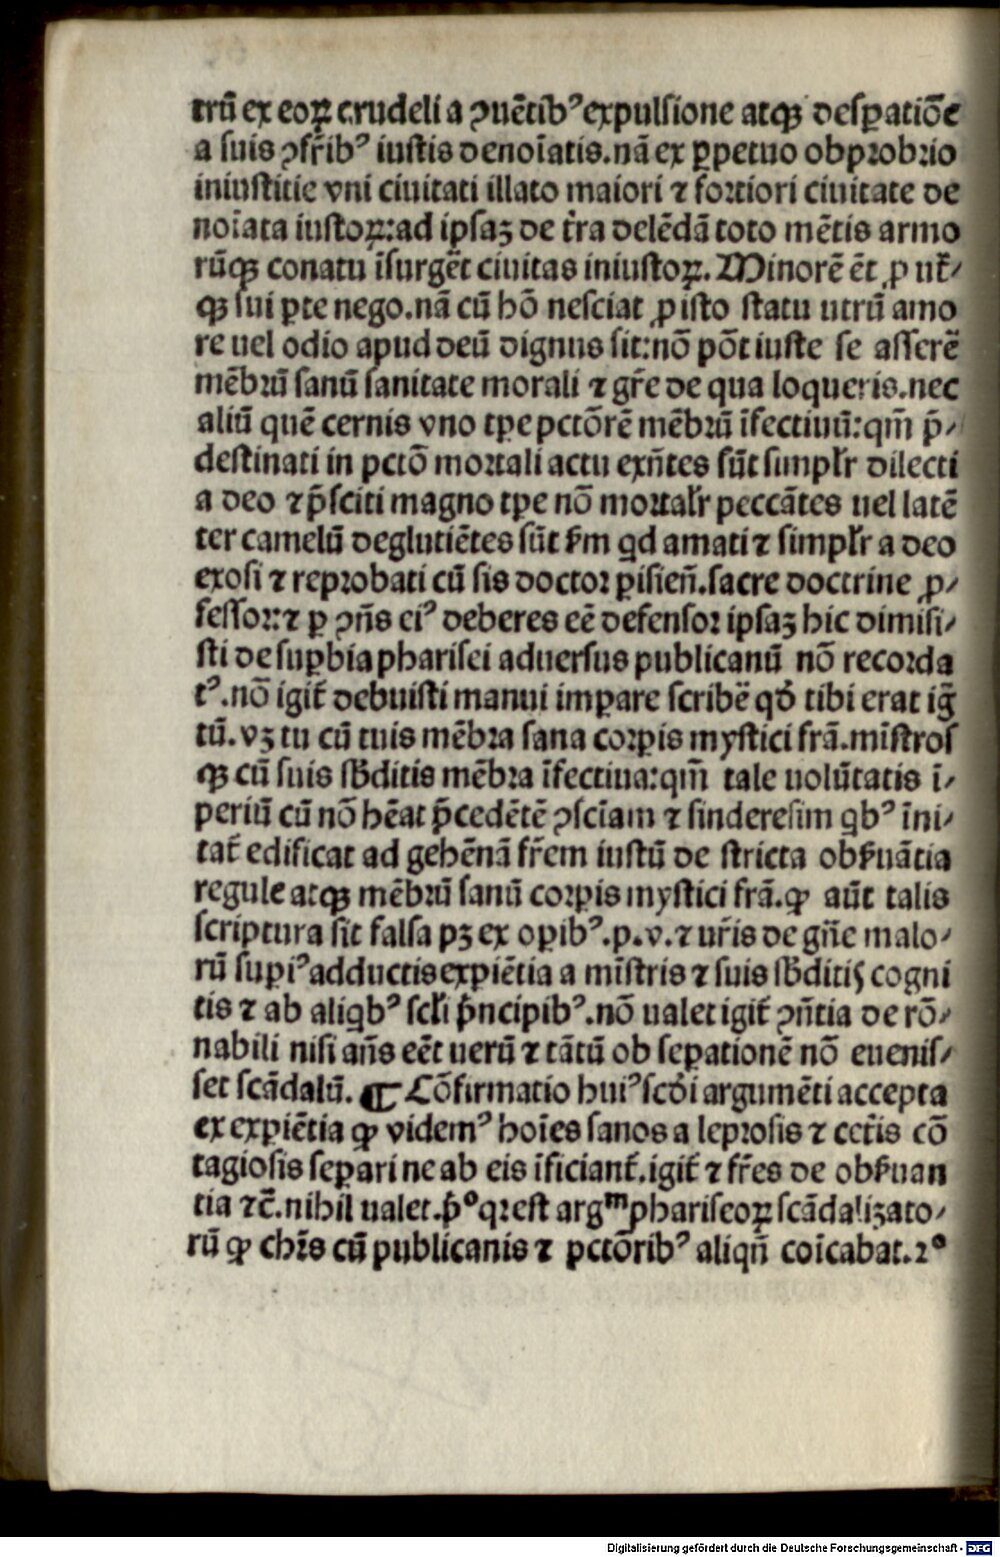 trū ex eoꝝ crudeli a ꝯuētibꝰ expulsione atqꝫ desꝑatiōe
a suis ꝯfr̄ibꝰ iustis denoīatis.nā ex ꝑpetuo obprobrio
iniustitie vni ciuitati illato maiori ⁊ fortiori ciuitate de
noīata iustoꝝ:ad ipsaꝫ de t̄ra delēdā toto mētis armo
rūqꝫ conatu īsurgēt ciuitas iniustoꝝ. Minorē ēt ꝓ utͥ⸗
qꝫ sui ꝑte nego.nā cū hō nesciat ꝓ isto statu utrū amo
re uel odio apud deū dignus sit:nō pōt iuste se asserē
mēbrū sanū sanitate morali ⁊ gr̄e de qua loqueris.nec
aliū quē cernis vno tꝑe pctōrē mēbrū īfectiuū:qm̄ p̄⸗
destinati in pctō mortali actu exn̄tes sūt simpl̄r dilecti
a deo ⁊ p̄sciti magno tꝑe nō mortal̄r peccātes uel latē
ter camelū deglutiētes sūt ẜm qd amati ⁊ simpl̄r a deo
exosi ⁊ reprobati cū sis doctor ꝑisien̄.sacre doctrine ꝓ⸗
fessor:⁊ ꝑ ꝯn̄s eiꝰ deberes eē defensor ipsaꝫ hic dimisi⸗
sti de suꝑbia pharisei aduersus publicanū nō recorda
tꝰ.nō igit̄ debuisti manui imꝑare scribē qđ tibi erat iḡ
tū.vꝫ tu cū tuis mēbra sana corꝑis mystici frā.mīstros
qꝫ cū suis sƀditis mēbra īfectiua:qm̄ tale uolūtatis ī⸗
periū cū nō hēat p̄cedētē ꝯscīam ⁊ sinderesim qbꝰ īni⸗
tat̄ edificat ad gehēnā fr̄em iustū de stricta obẜuātia
regule atqꝫ mēbrū sanū corꝑis mystici frā.ꝙ aūt talis
scriptura sit falsa pꝫ ex oꝑibꝰ.p.v.⁊ ur̄is de gn̄e malo⸗
rū suꝑiꝰ adductis exꝑiētia a mīstris ⁊ suis sƀditis cogni
tis ⁊ ab aliqbꝰ scl̄i p̄ncipibꝰ.nō ualet igit̄ ꝯn̄tia de rō⸗
nabili nisi an̄s eēt uerū ⁊ tātū ob seꝑationē nō euenis⸗
set scādalū. ¶ Cōfirmatio huiꝰ scđi argumēti accepta
ex exꝑiētia ꝙ videmꝰ hoīes sanos a leprosis ⁊ cet̄is cō
tagiosis seꝑari ne ab eis īficiant̄.igit̄ ⁊ fr̄es de obẜuan
tia ⁊c̄.nihil ualet.p̄º qꝛ est argᵐ phariseoꝝ scādalizato⸗
rū ꝙ chr̄s cū publicanis ⁊ pctōribꝰ aliqn̄ coīcabat.2º
Digitalisierung gefördert durch die Deutsche Forschungsgemeinschaft - DFG